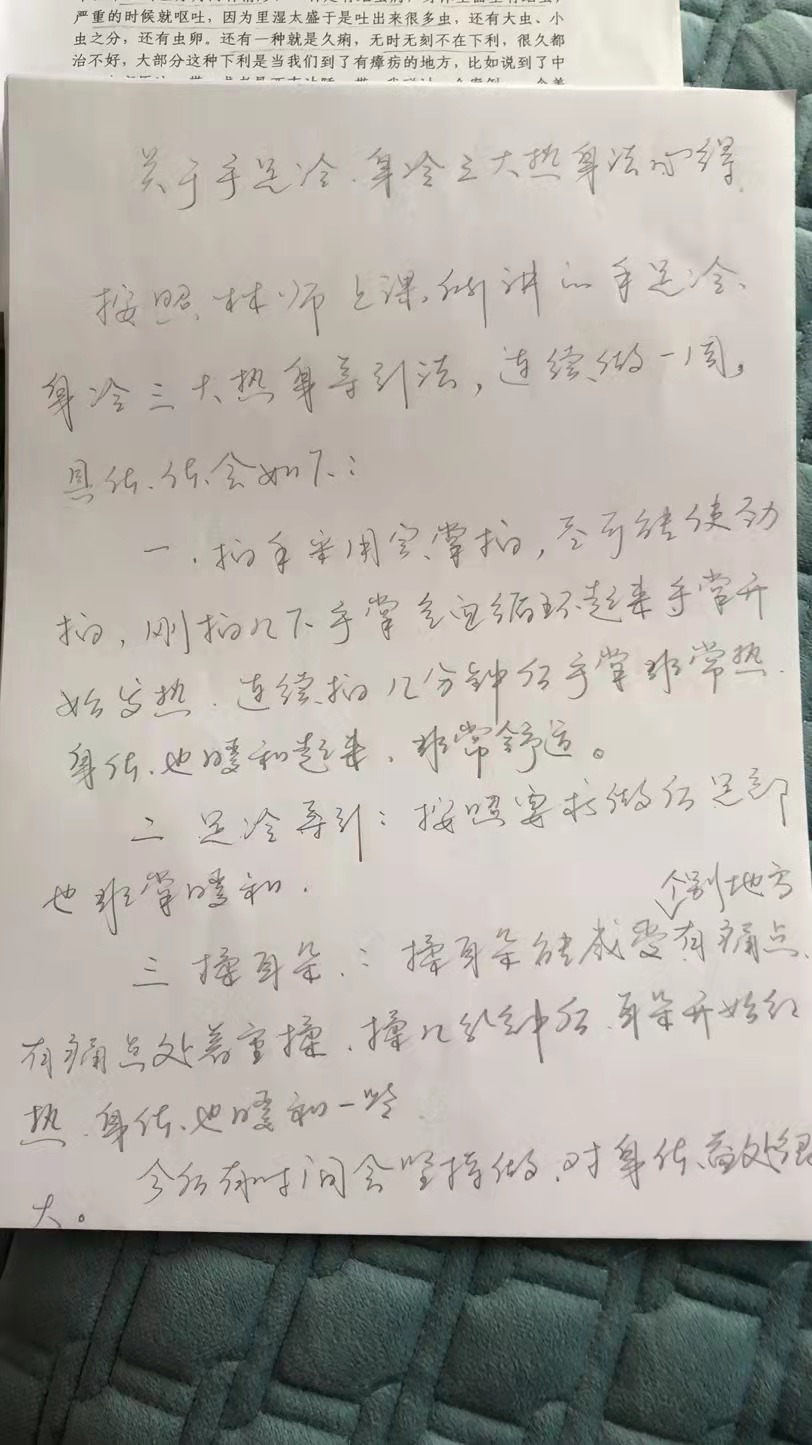 严重的时候就呕吐，因为里湿太盛于是吐出来很多虫，还有大虫、小
虫之分，还有虫卵。还有一种就是久痢，无时无刻不在下利，很久都
治不好，大部分这种下利是当我们到了有瘴疠的地方，比如说到了中
关于手足冷、身冷三大热身法心得
按照林师上课所讲的手足冷、
身冷三大热身导引法，连续做一周。
具体体会如下：
一、拍手采用实掌拍，尽可能使劲
拍，刚拍几下手掌气血循环起来手掌开
始发热．连续拍几分钟后手掌非常热．
身体也暖和起来、非常舒适。
二 足冷导引：按照要求做后足部
也非常暖和．
个别地方
三 揉耳朵：揉耳朵能感受有痛点、
有痛点处着重揉、揉几分钟后耳朵开始红
热、身体也暖和一些
今后有时间会坚持做、对身体益处很
大。